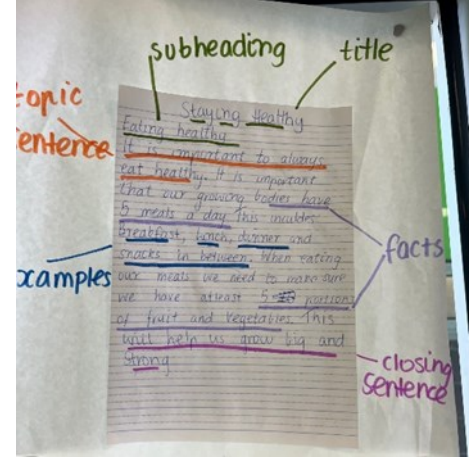 subheading
title
topic
sentence
Staying Healthy
Eating healthy
It is important to always
eat healthy. It is important
that our growing bodies have
5 meals a day This includes
breakfast, lunch, dinner and
snacks in between. When eating
our meals we need to make sure
we have atleast 5 portions
of fruit and vegetables. This
will help us grow big and
strong
facts
examples
closing
sentence